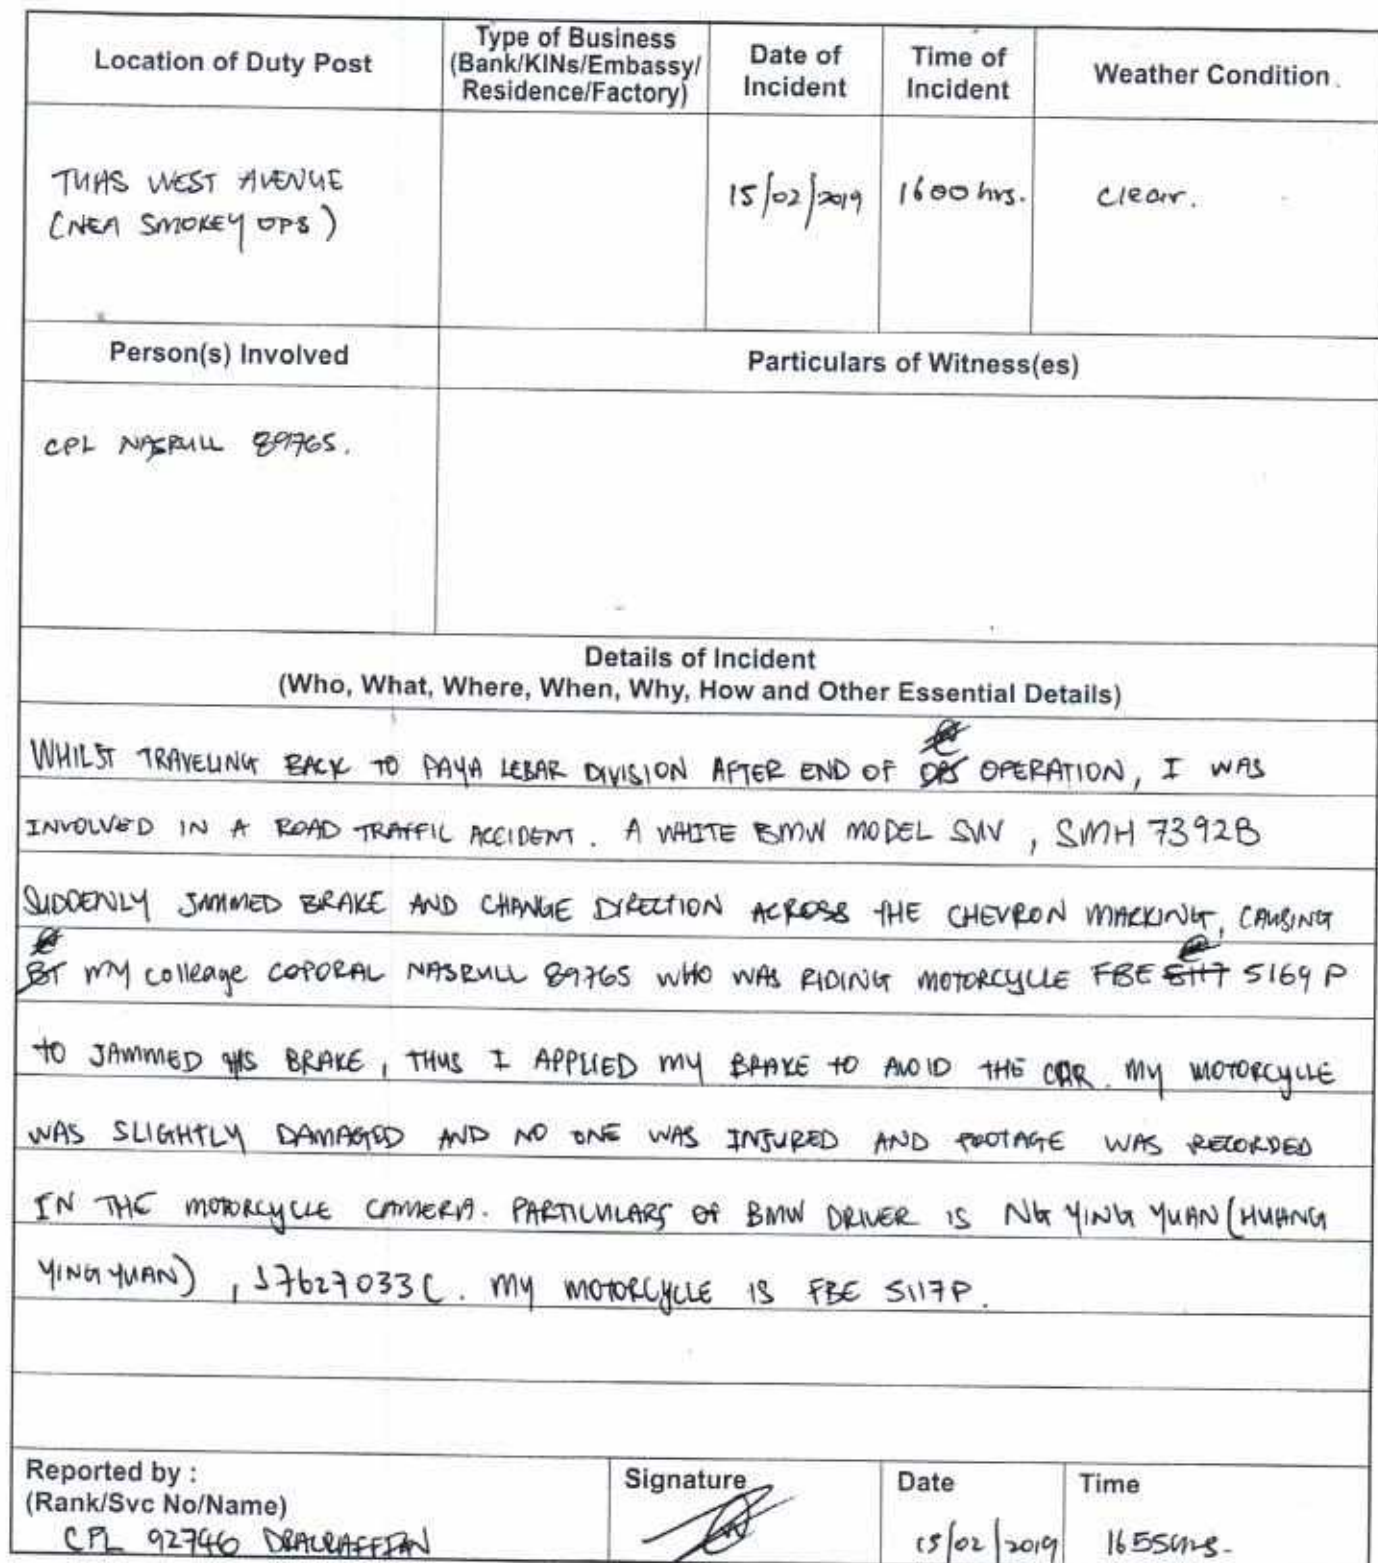 Location of Duty Post
Type of Business
(Bank/KINs/Embassy/
Residence/Factory)
Date of
Incident
Time of
Incident
Weather Condition
TUAS WEST AVENUE
(NEA SMOKEY OPS)
15/02/2019
1600 hrs.
clear.
Person(s) Involved
Particulars of Witness(es)
CPL NASRULL 89765.
Details of Incident
(Who, What, Where, When, Why, How and Other Essential Details)
WHILST TRAVELING BACK TO PAYA LEBAR DIVISION AFTER END OF OPS OPERATION, I WAS
INVOLVED IN A ROAD TRAFFIC ACCIDENT. A WHITE BMW MODEL SUV, SMH 7392B
SUDDENLY JAMMED BRAKE AND CHANGE DIRECTION ACROSS THE CHEVRON MARKING, CAUSING
BT MY colleage COPORAL NASRULL 89765 WHO WAS RIDING MOTORCYCLE FBE 5117 5169 P
TO JAMMED HIS BRAKE, THUS I APPLIED MY BRAKE TO AVOID THE CAR. MY MOTORCYCLE
WAS SLIGHTLY DAMAGED AND NO ONE WAS INJURED AND FOOTAGE WAS RECORDED
IN THE MOTORCYCLE CAMERA. PARTICULARS OF BMW DRIVER IS NG YING YUAN (HUANG
YING YUAN), S7627033C. MY MOTORCYCLE IS FBE 5117P.
Reported by :
(Rank/Svc No/Name)
CPL 92746
Signature
Date
15/02/2019
Time
1655hrs.